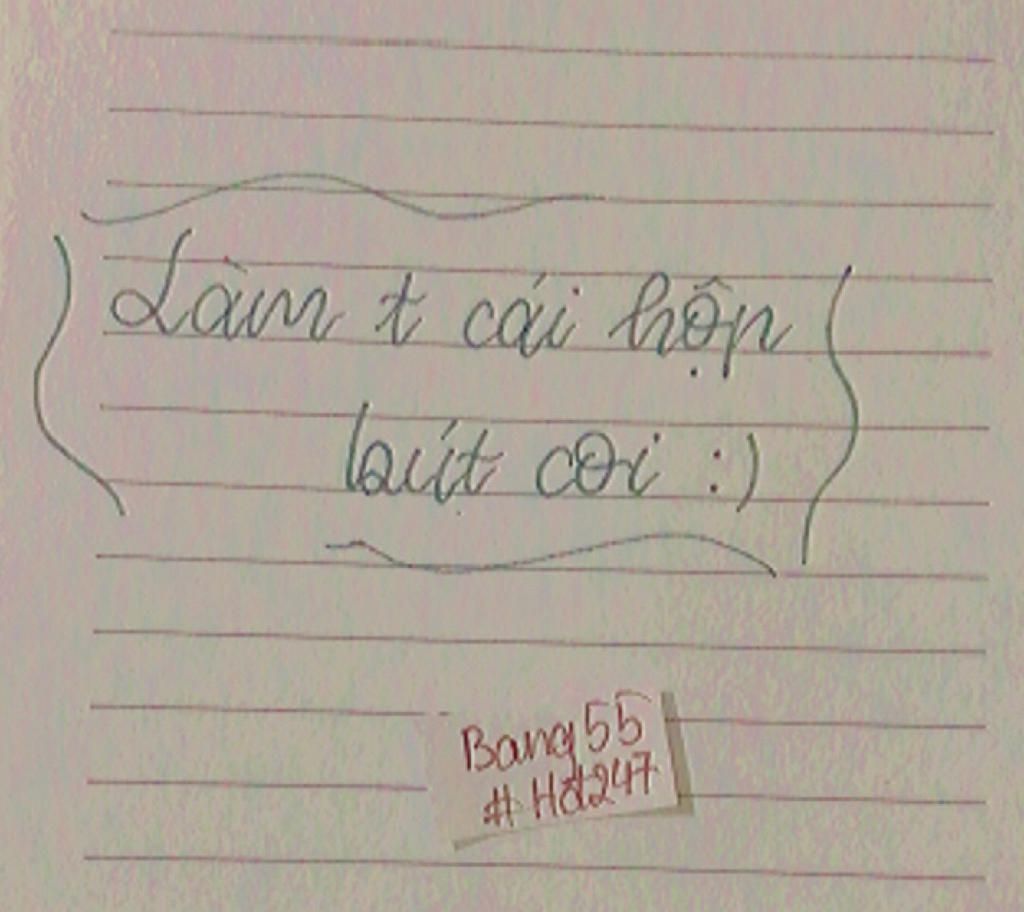 Làm t cái hộp
bút coi :)
Bang55
#Hd247